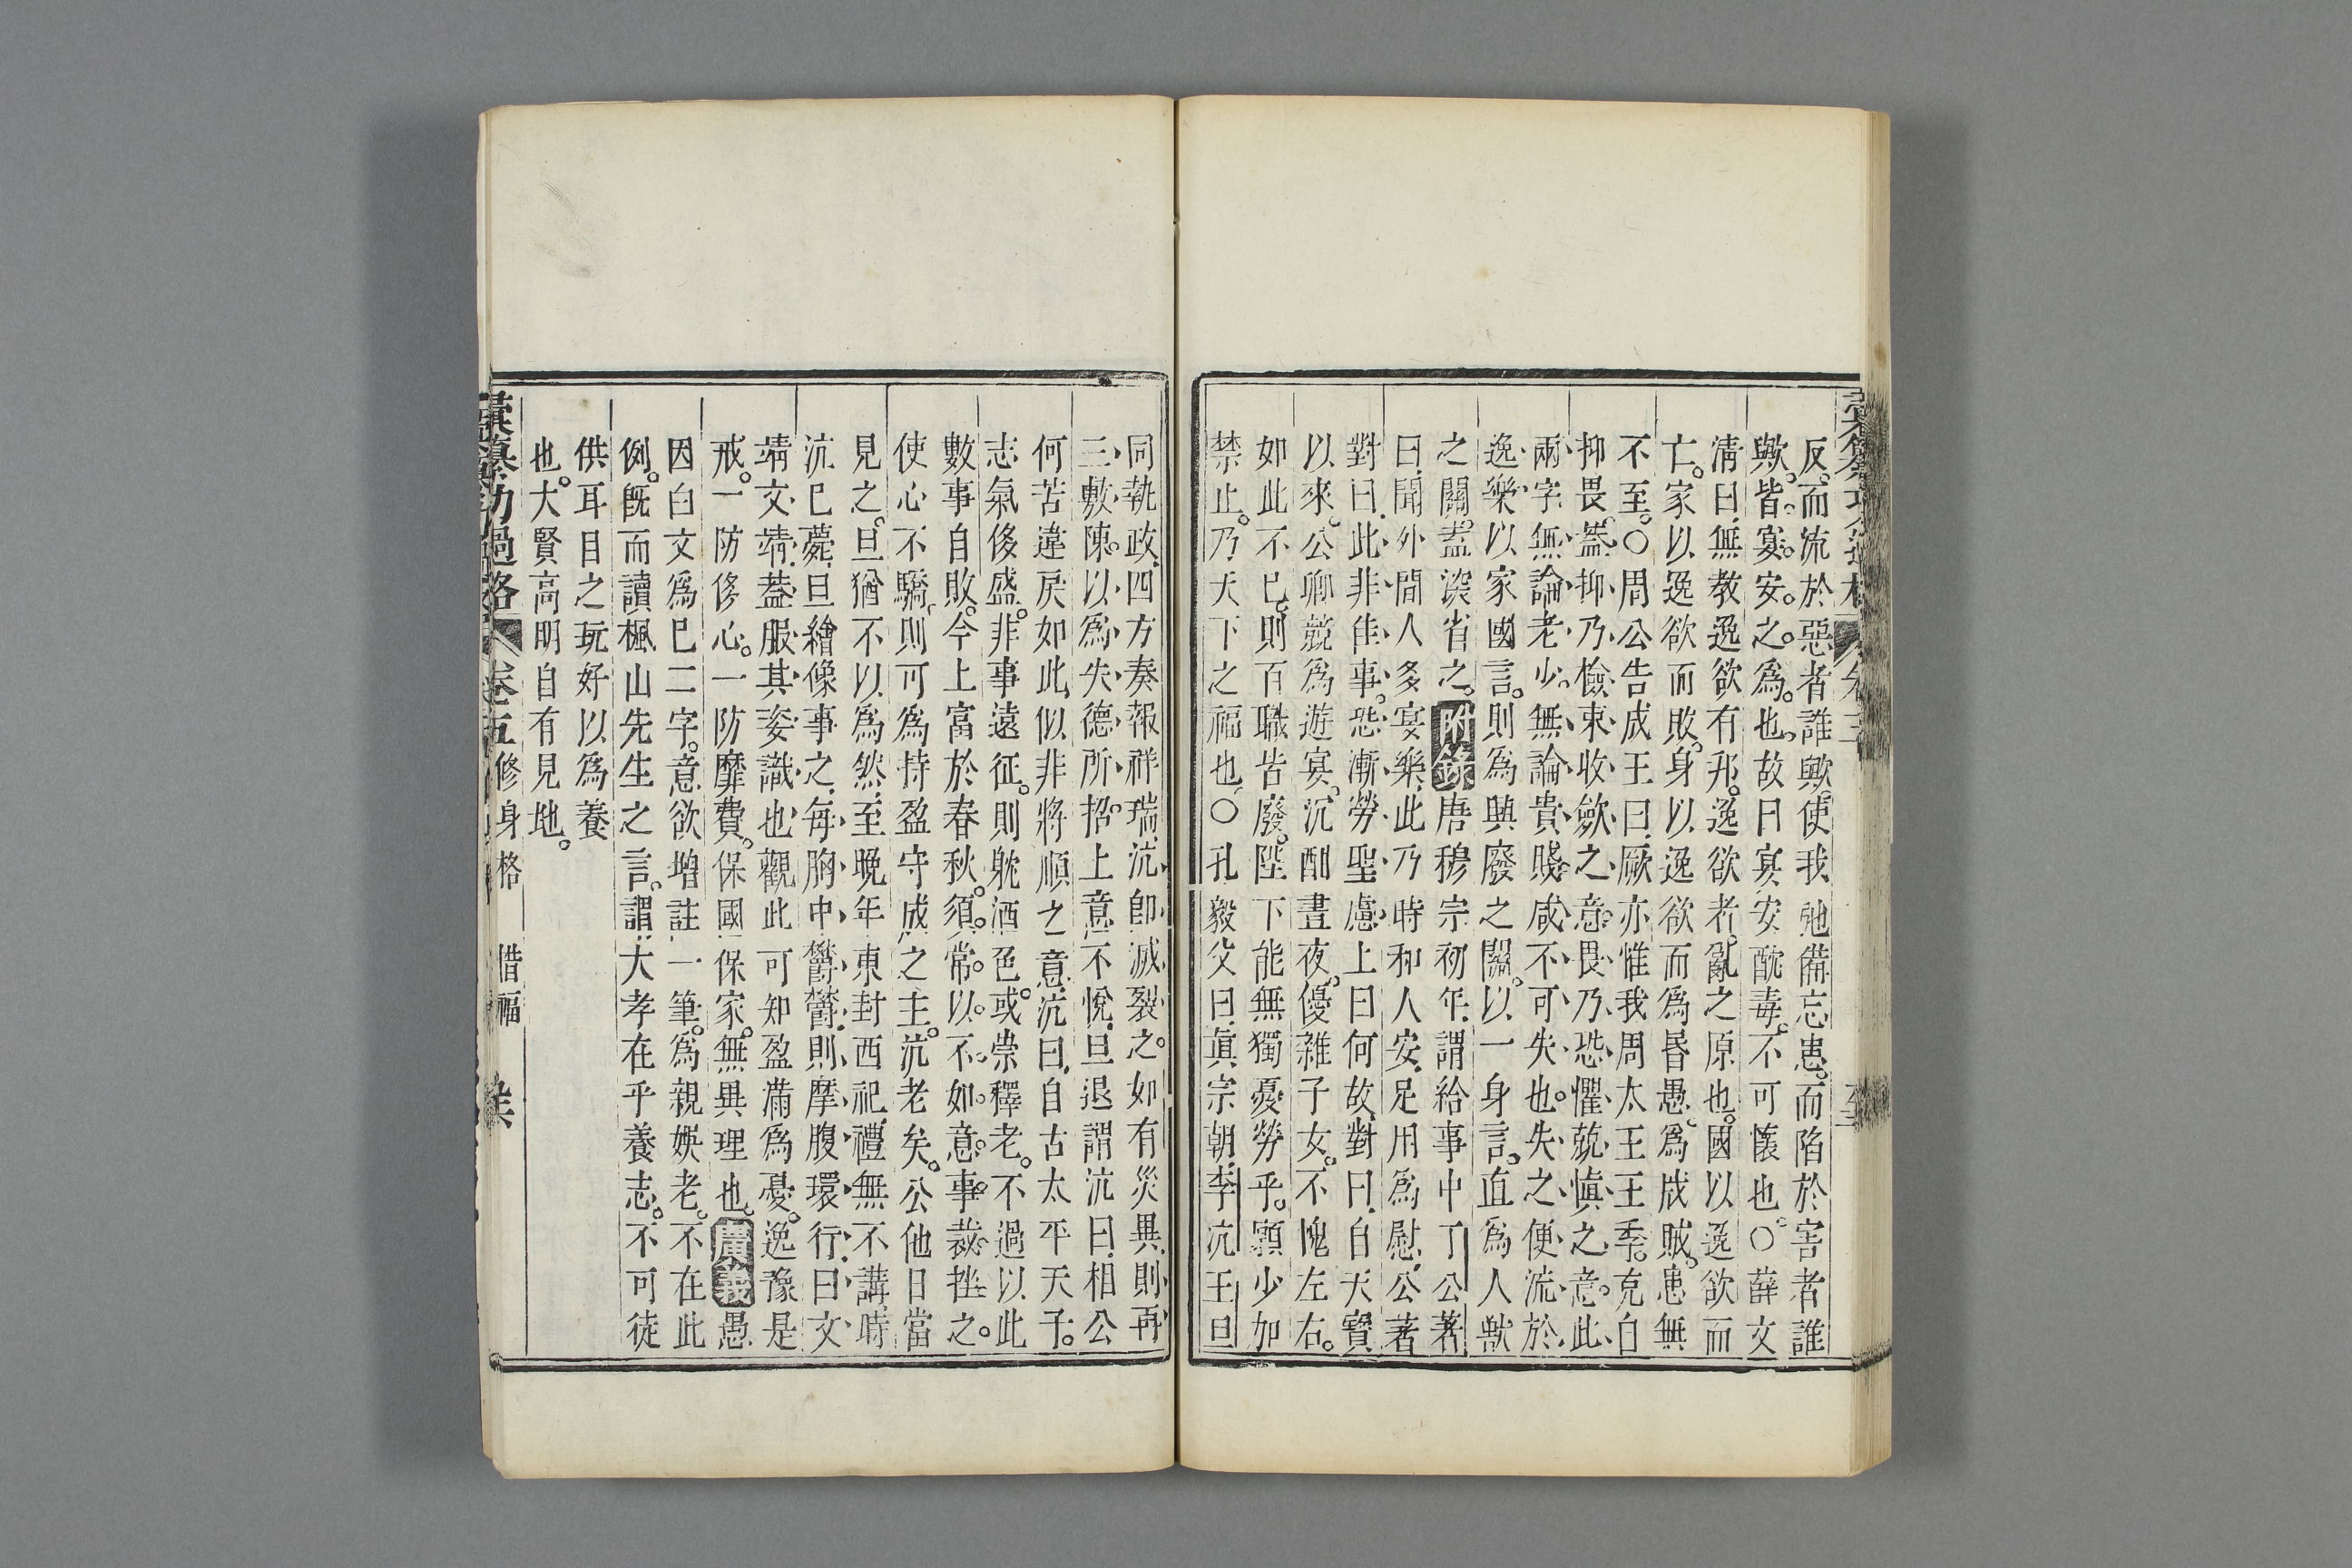 反。而流於惡者誰歟。使我弛備忘患。而陷於害者誰
歟。皆。宴。安。之。爲。也。故曰宴安酖毒。不可懷也。○薛文
清曰、無教逸欲有邦。逸欲者。亂之原也。國以逸欲而
亡。家以逸欲而敗。身以逸欲而爲昬愚。爲戕賊。患無
不至。○周公告成王曰、厥亦惟我周太王王季。克自
抑畏。葢抑乃檢束收斂之意。畏乃恐懼兢愼之意。此
兩字無論老少。無論貴賤。咸不可失也。失之便流於
逸樂以家國言。則爲興廢之關。以一身言。直爲人獸
之關。葢深省之。附錄唐穆宗初年、謂給事中丁公著
曰、聞外間人多宴樂、此乃時和人安、足用爲慰、公著
對曰、此非佳事。恐漸勞聖慮、上曰何故、對曰、自天寶
以來。公卿競爲遊宴。沉酣晝夜。優雜子女。不愧左右。
如此不已。則百職皆廢。陛下能無獨憂勞乎。願少加
禁止。乃天下之福也、○孔毅父曰、眞宗朝、李沆王旦
同執政、四方奏報祥瑞、沆卽滅裂之。如有災異、則再
三敷陳。以爲失德所招。上意不悅、旦退謂沆曰、相公
何苦違戾如此、似非將順之意、沆曰、自古太平天子。
志氣侈盛。非事遠征。則躭酒色。或崇釋老。不過以此
數事自敗。今上富於春秋。須。常。以。不。如。意。事。裁。挫。之。
使心不驕。則可爲持盈守成之主。沆老矣。公他日當
見之。旦猶不以爲然、至晚年東封西祀、禮無不講、時
沆已薨、旦繪像事之、每胸中鬱鬱、則摩腹環行、曰文
靖文靖、葢服其姿識也、觀此可知盈滿爲憂。逸豫是
戒。一防侈心。一防靡費。保國保家。無異理也。廣義愚
因白文爲已二字。意欲增註一筆。爲親娛老。不在此
例。旣而讀楓山先生之言。謂大孝在乎養志。不可徒
供耳目之玩好以爲養
也。大賢高明自有見地。
彙纂功過格 卷五修身格 惜福